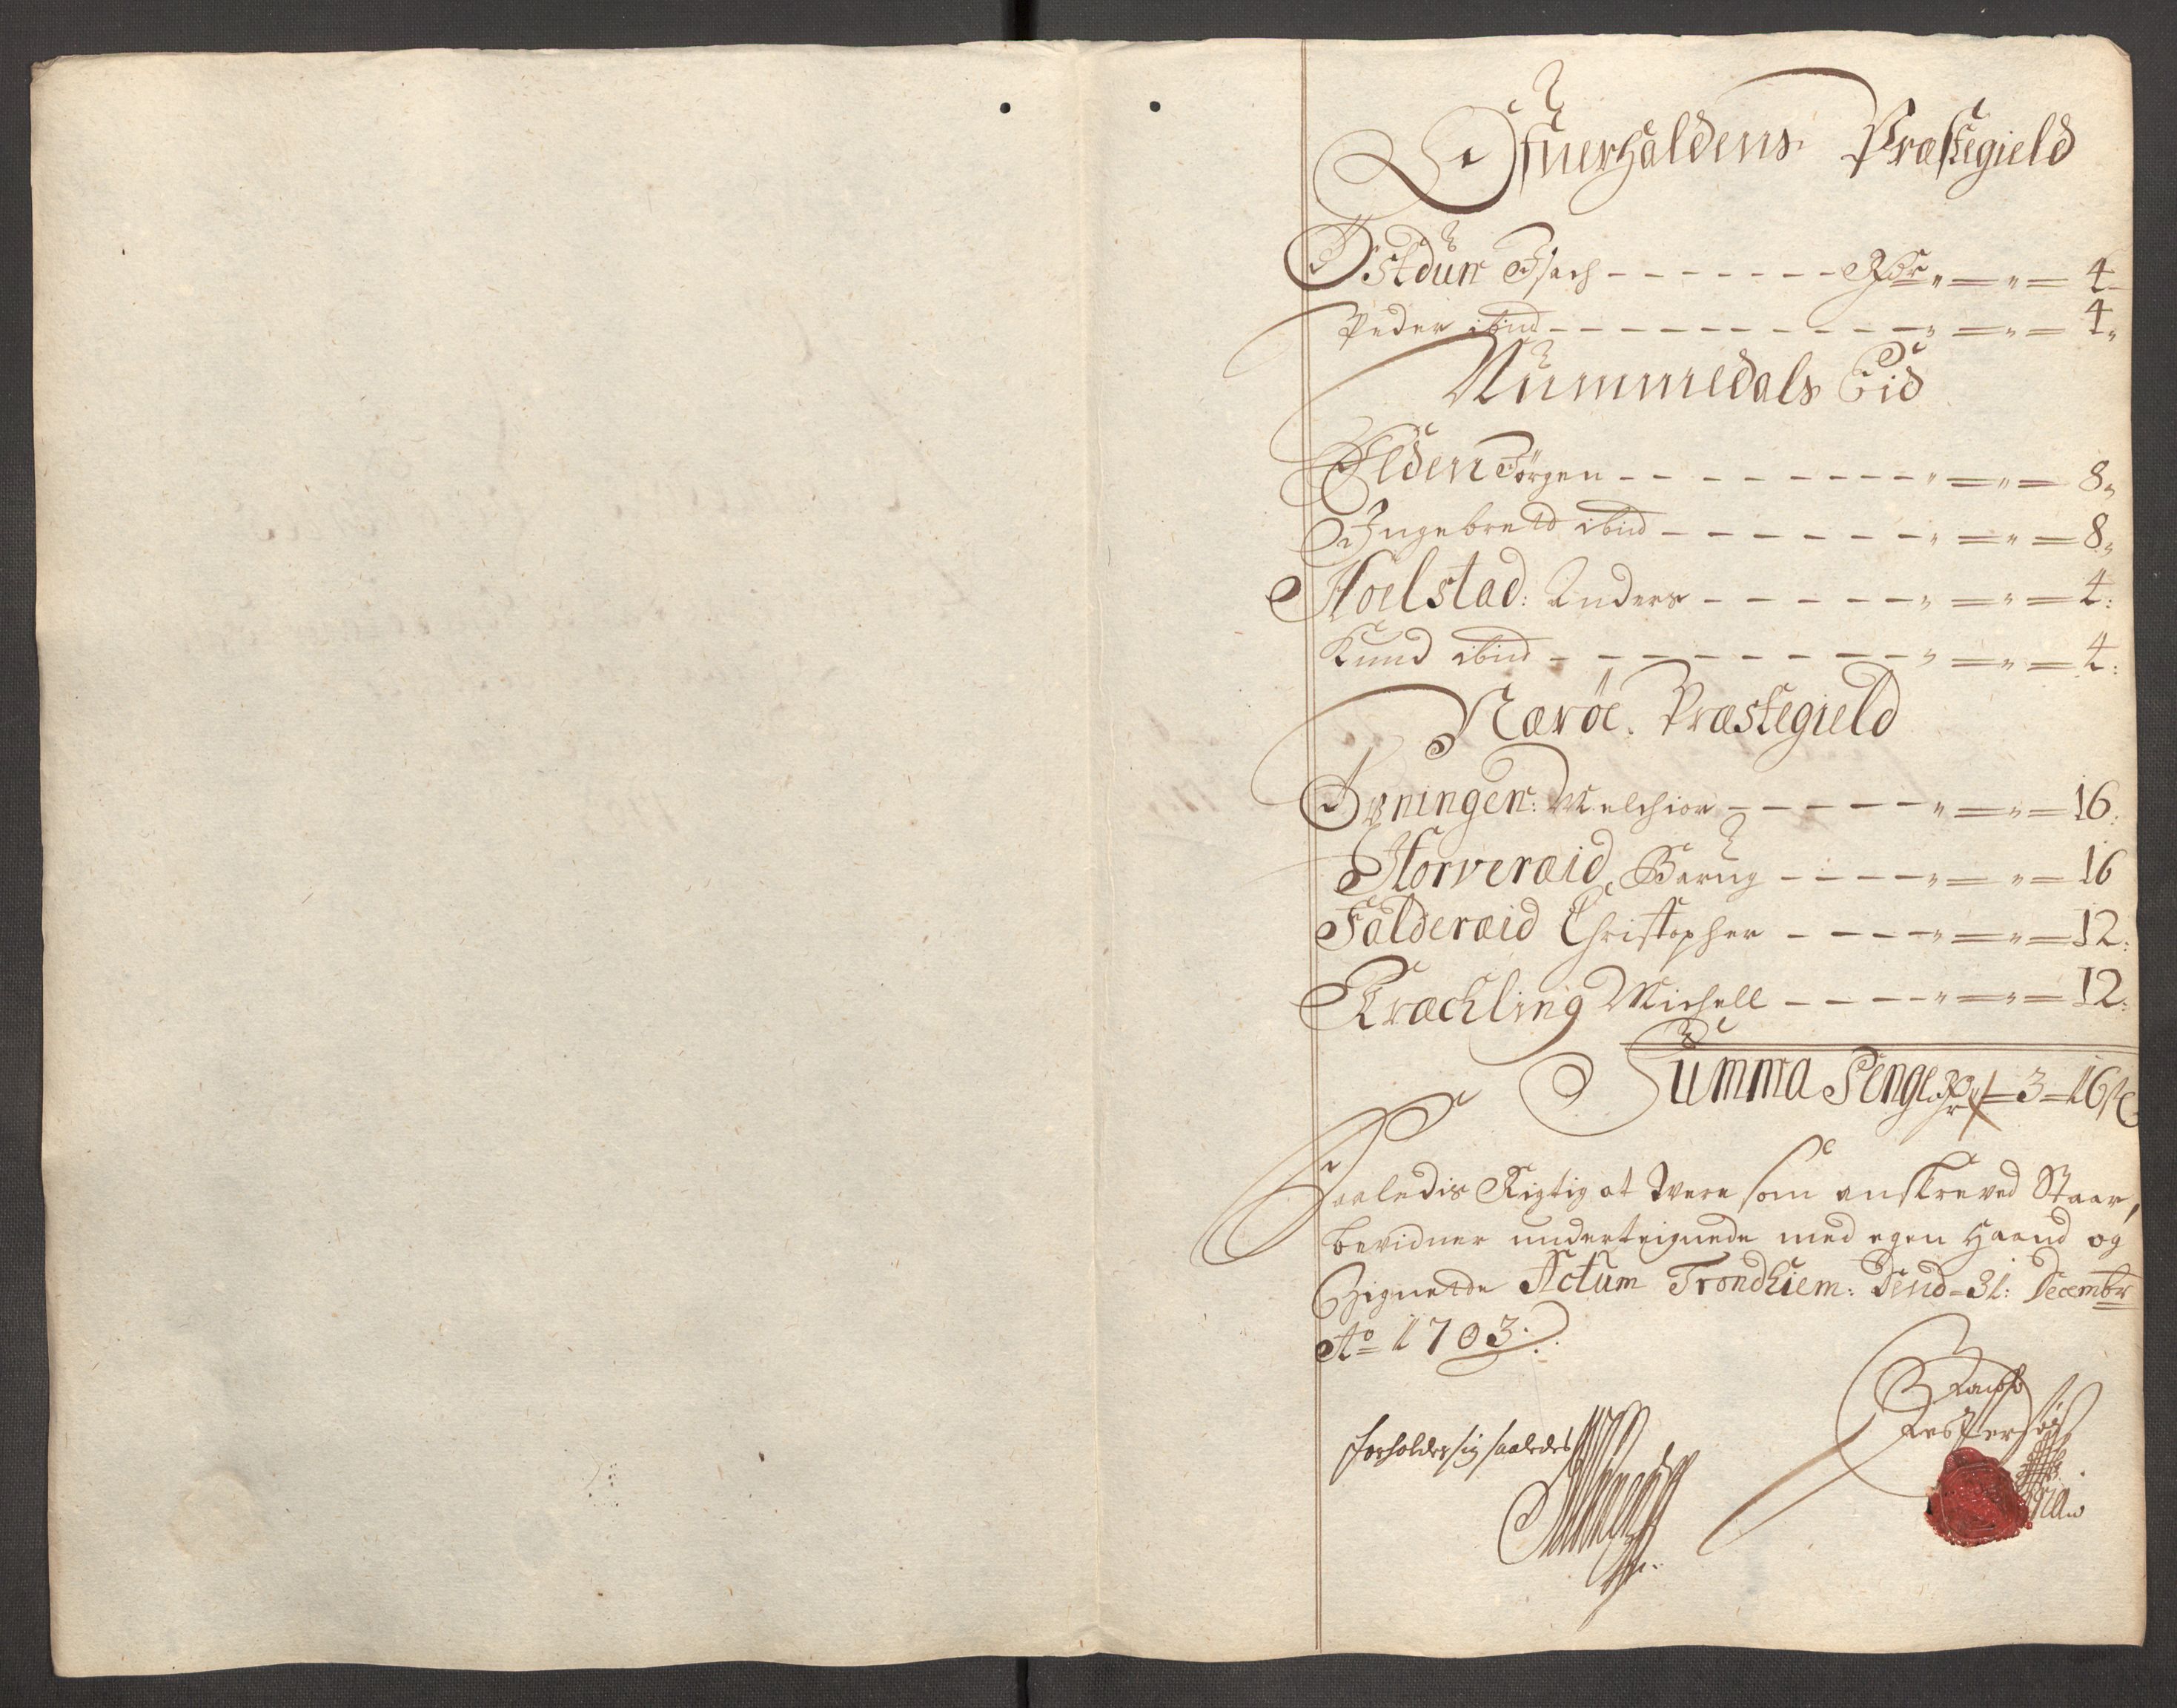 Ofuerhaldens Præstegield
Østdun Isach - - - - - - - Rdr " = " = 4 -
Peder ibid - - - - - - - - - - - " = " = 4 "
Nummedals Eid
Elden Jørgen - - - - - - - - - " = " = 8 "
Ingebretd ibid - - - - - - - " = " = 8 "
Hoelstad: Anders - - - - - - " = " = 4:
Knud ibid - - - - - - - - - " = " = 4:
Nærøe Præstegield
Melchior - - - - - " = " = 16:
Horveræid Barug - - - - - " = " = 16
Falderæid Christopher - - - - " = " = 12:
Kræchling Michell - - - - - " = " = 12:
Summa Penge Rdr = 3 = 16 s
Saaledis Rigtig at were som anskreved Staar,
bevidner underteignede med egen Haand og
Zignetde Actum Trondhiem: Dend = 31: Decembr
Ao 1703:
forholder sig saaledes